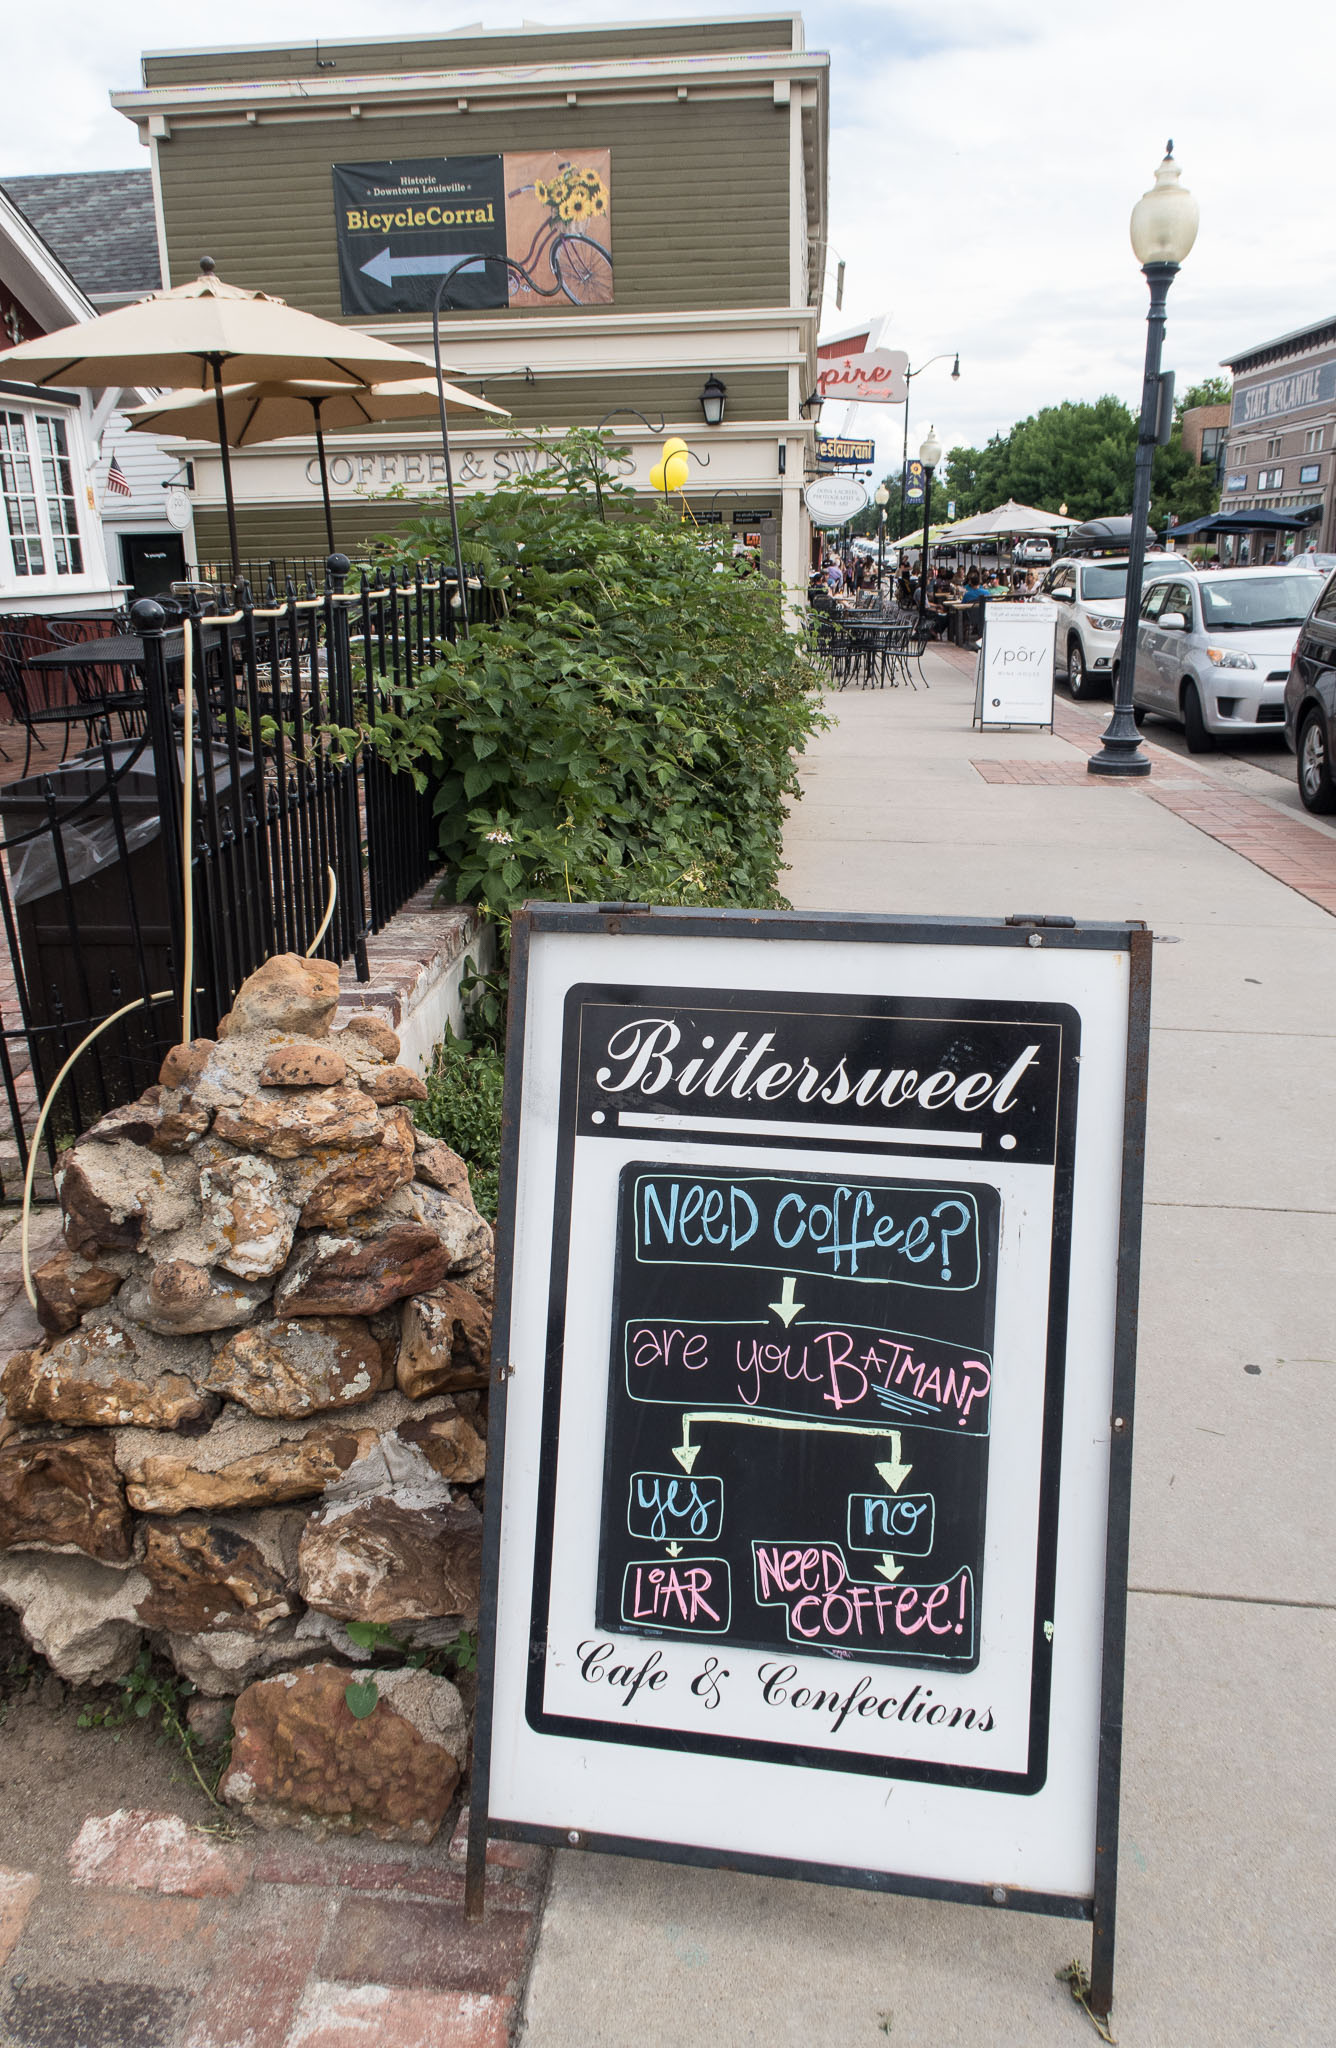 Historic
Downtown Louisville
BicycleCorral
COFFEE & SWEETS
pire
Restaurant
STATE MERCANTILE
/pôr/
WINE HOUSE
Bittersweet
NeeD Coffee?
are you BATMAN?
yes
no
LiAR
NeeD
COFFee!
Cafe & Confections